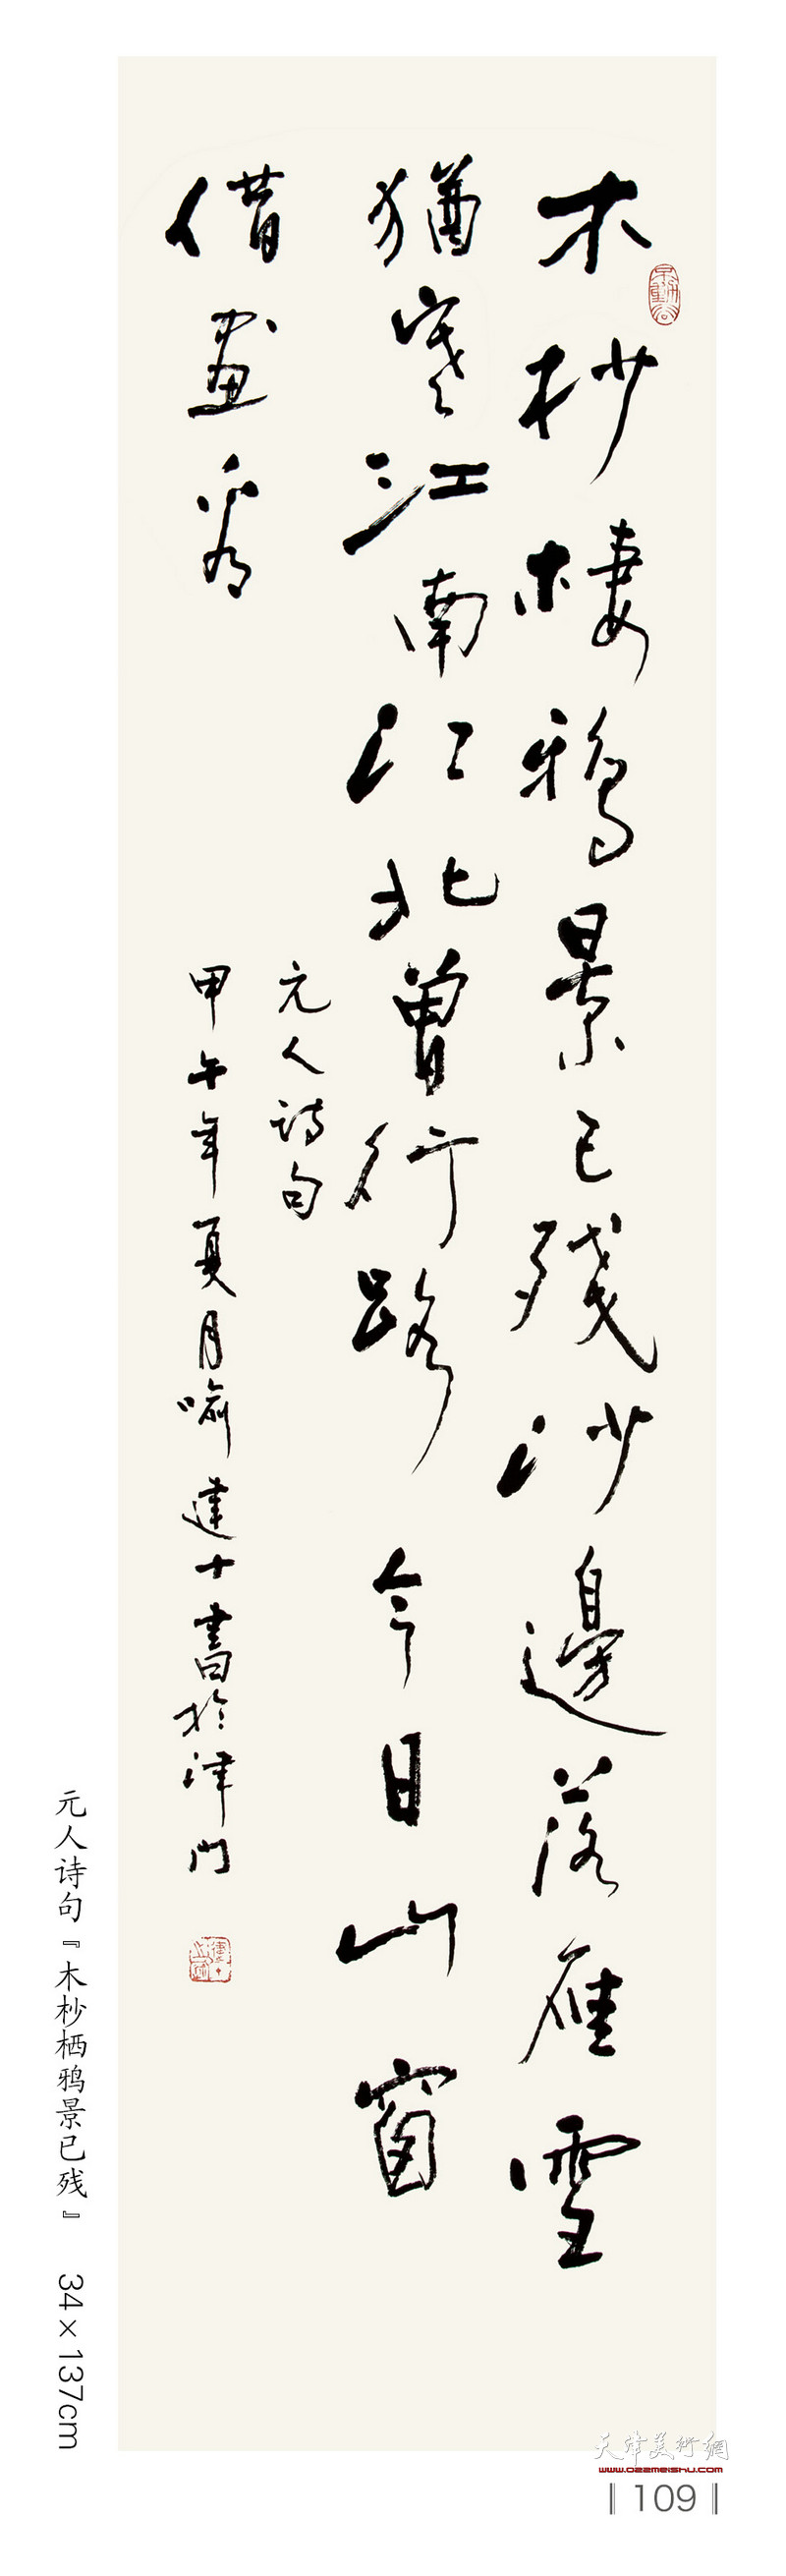 木杪棲鴉景已殘沙邊落雁雪
猶寒江南江北曾行路今日山窗
借畫看
元人诗句
甲午年夏月喻建十書於津門
元人诗句『木杪栖鸦景已残』 34×137cm
天津美術網
www.022meishu.com
109